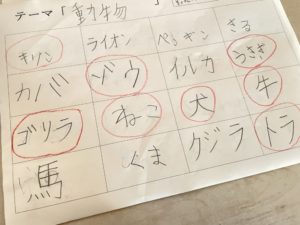 テーマ「動物」
きりん ライオン ペンギン さる
カバ ゾウ イルカ うさぎ
ゴリラ ねこ 犬 牛
馬 くま クジラ トラ